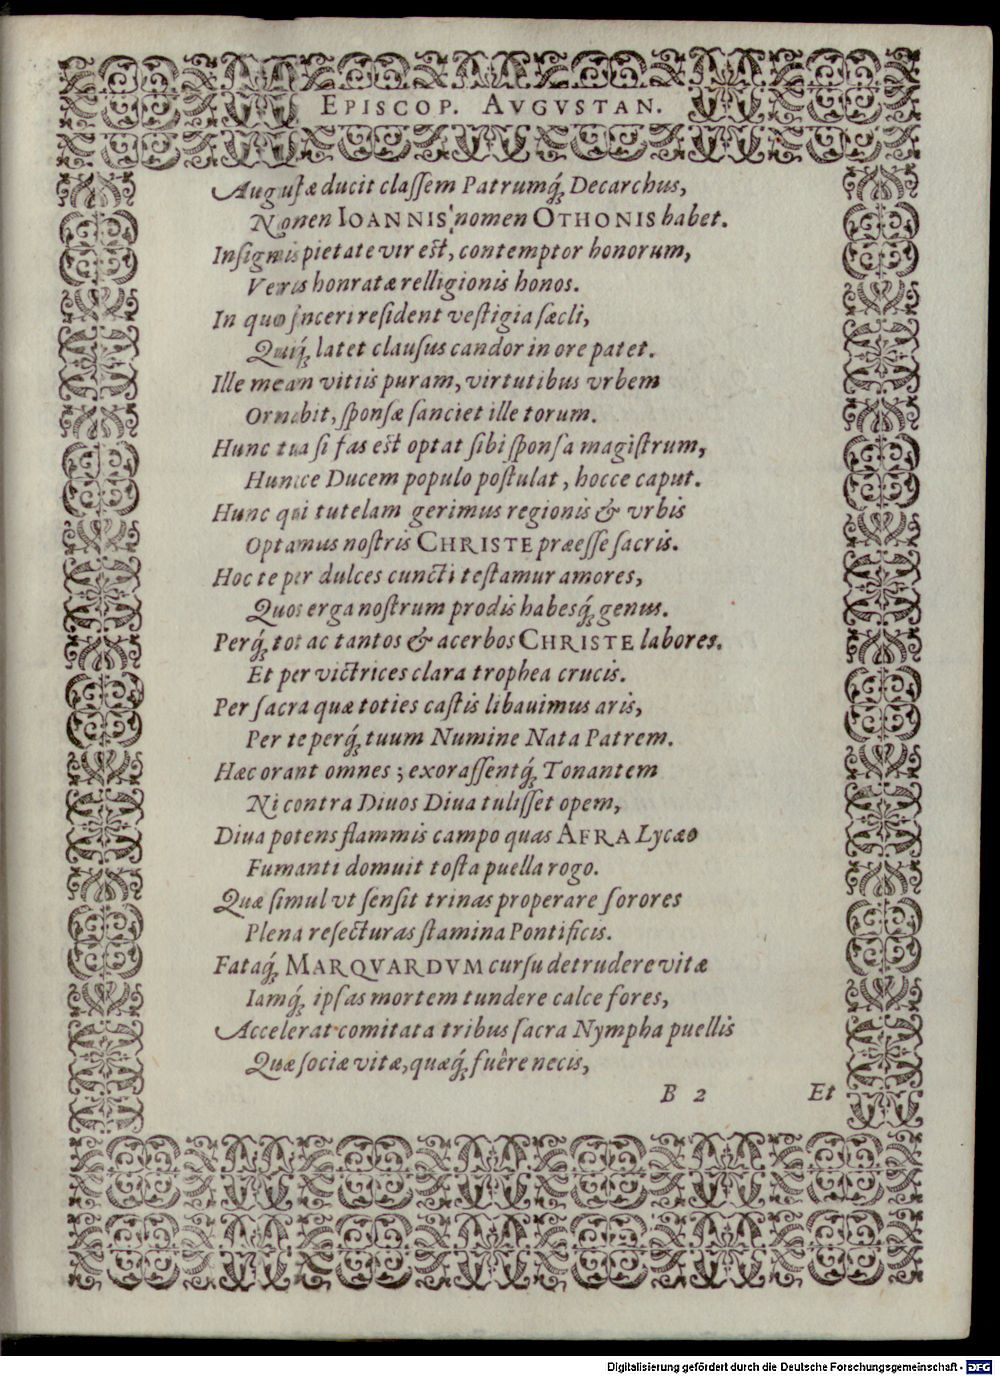 EPISCOP. AVGVSTAN.
Augustæ ducit classem Patrumq́; Decarchus,
Nomen IOANNIS, nomen OTHONIS habet.
Insignis pietate vir est, contemptor honorum,
Verus honratæ relligionis honos.
In quo sinceri resident vestigia sæcli,
Quiq́; latet clausus candor in ore patet.
Ille meam vitiis puram, virtutibus vrbem
Ornabit, sponsæ sanciet ille torum.
Hunc tua si fas est optat sibi sponsa magistrum,
Huncce Ducem populo postulat, hocce caput.
Hunc qui tutelam gerimus regionis & vrbis
Optamus nostris CHRISTE præesse sacris.
Hoc te per dulces cuncti testamur amores,
Quos erga nostrum prodis habesq́; genus.
Perq́; tot ac tantos & acerbos CHRISTE labores.
Et per victrices clara trophea crucis.
Per sacra quæ toties castis libauimus aris,
Per te perq́; tuum Numine Nata Patrem.
Hæc orant omnes; exorassentq́; Tonantem
Ni contra Diuos Diua tulisset opem,
Diua potens flammis campo quas AFRA Lycæo
Fumanti domuit tosta puella rogo.
Quæ simul vt sensit trinas properare sorores
Plena resecturas stamina Pontificis.
Fataq́; MARQVARDVM cursu detrudere vitæ
Iamq́; ipsas mortem tundere calce fores,
Accelerat comitata tribus sacra Nympha puellis
Quæ sociæ vitæ, quæq́; fuêre necis,
B 2 Et
Digitalisierung gefördert durch die Deutsche Forschungsgemeinschaft - DFG